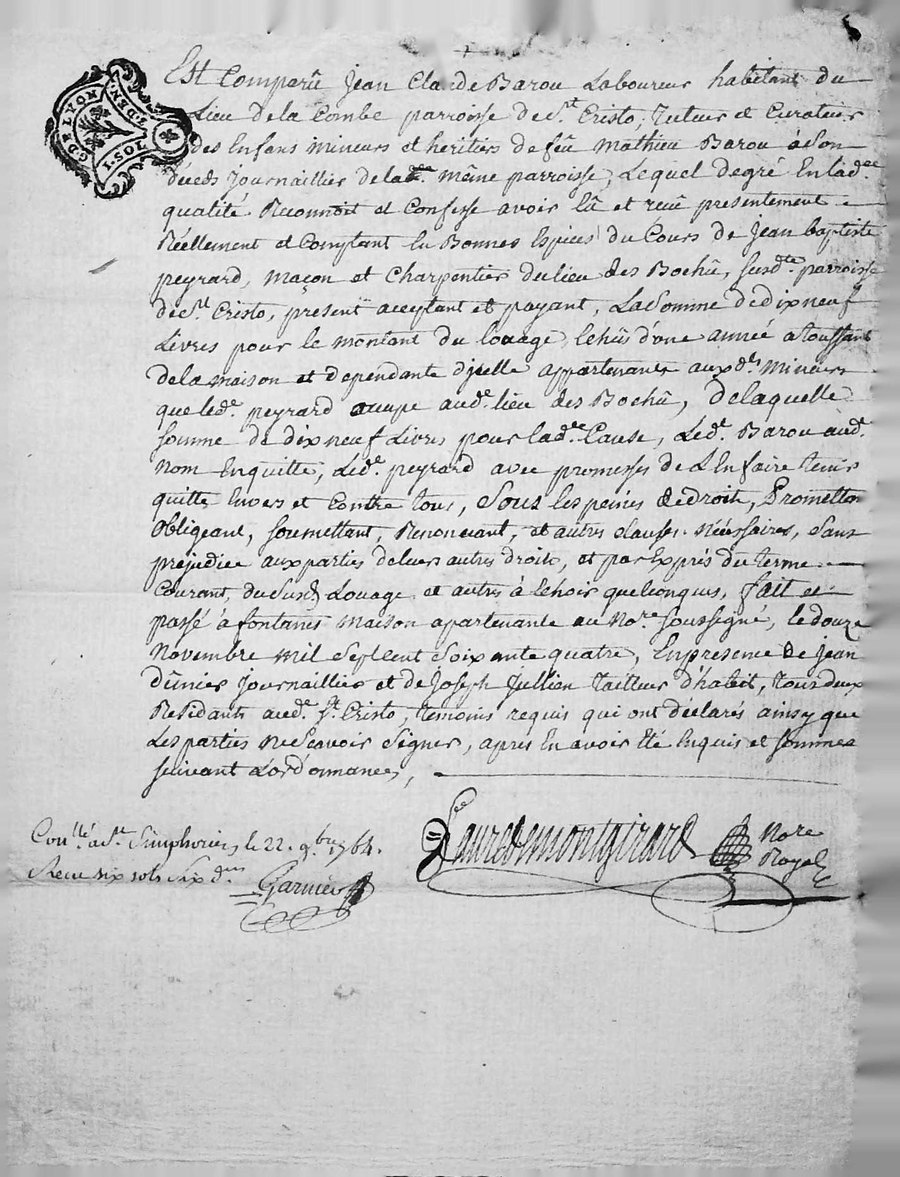 G.DE LYON
1.SOL
4.DEN.
Est Comparû Jean Claude Barou Laboureur habitant du
Lieu de la Combe parroisse de St. Cristo, tuteur et Curateur
des Enfans Mineurs et heritiers de feû Mathieu Barou à Son
decéds Journaillier de lade. même parroisse, Lequel de gré En lade.
qualité Reconnoit et Confesse avoir Eû et receû presentement
Réellement et Comptant En Bonnes Espèces du Cours de Jean Baptiste
peyrard, Maçon et Charpentier du lieu des Bochû, susdte. parroisse
de St. Cristo, present acceptant et payant, La Somme de dix neuf
Livres pour le montant du louage, Echûs d'une année a toussaint
de la maison et dependante d'icelle appartenants auxds. Mineurs
que led. peyrard occupe aud. lieu des Bochû, de laquelle
Somme de dix neuf Livres pour lade. Cause, Led. Barou aud.
Nom En quitte, Led. peyrard avec promesses de L'En faire tenir
quitte Envers et Contre tous, Sous les peines de droit, Promettant
obligeant, soumettant, Renonceant, et autres Clauses Nécessaires, Sans
prejudice aux parties de leurs autres droits, et par Exprés du terme
Courant, du Susd. Louage et autres à Echoir quelconques, fait et
passé à fontanés Maison apartenante au Nore. soussigné, le douze
Novembre Mil Sept Cent Soixante quatre, En presence de Jean
Journaillier et de Joseph Jullien tailleur d'habit, tous deux
Residants aud. St. Cristo, temoins requis qui ont déclarés ainsy que
Les parties Ne Scavoir Signer, aprés En avoir Été Enquis et sommés
suivant L'ordonnance,
Conllé. à St. Simphorien, le 22. 9bre 1764.
Receu six sols six ds.
Garnier
Faure de montgirard Nore
Royal